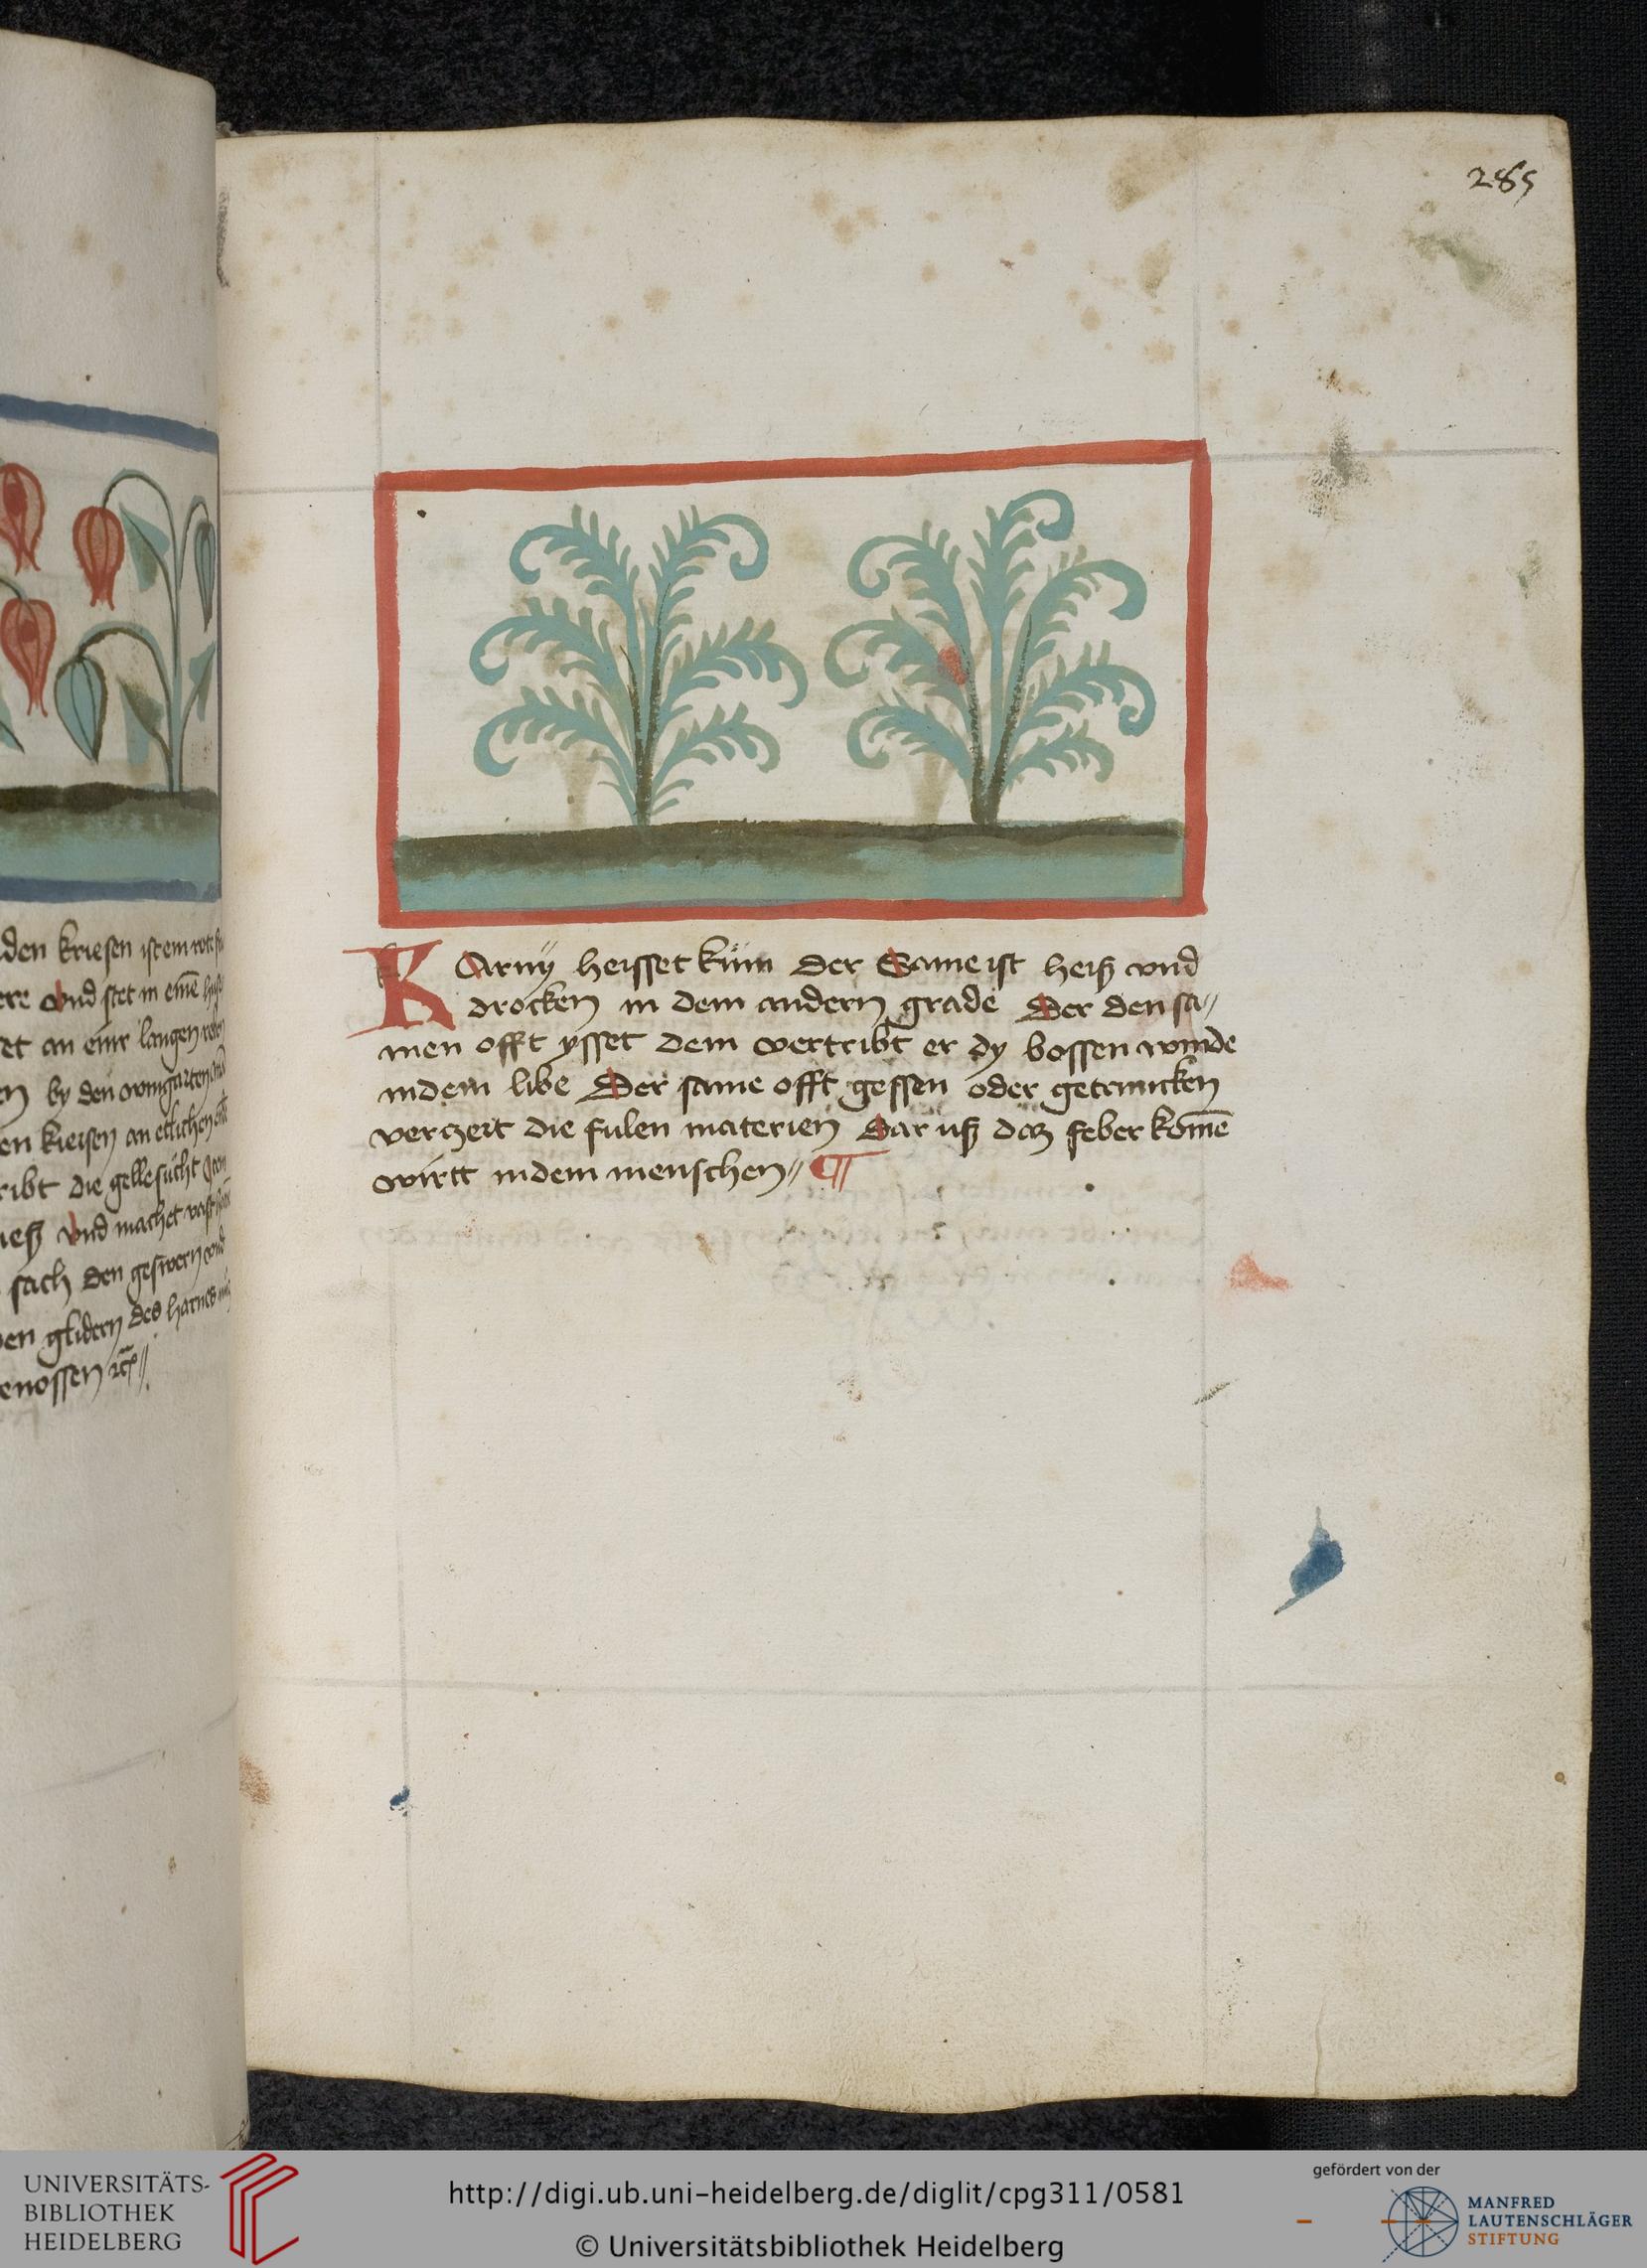 285
den kriesen ist ein rote
ere vnd stet in eine
et an einr langen reben
en by den wingarten vnd
en kiersen an etlichen
ribt die gelle sucht
ieß vnd machet vast
sach den geswern vnd
en glidern des harnes
enossen
KAruÿ heisset küm Der Same ist heiß vnd
drocken in dem andern grade Der den sa〃
men offt ysset dem vertribt er dy bossen winde
indem libe Der same offt gessen oder getrnncken
verzert die fulen materien Dar uß daz feber komē
wirtt indem menschen〃 ¶
UNIVERSITÄTS-
BIBLIOTHEK
HEIDELBERG
http://digi.ub.uni-heidelberg.de/diglit/cpg311/0581
© Universitätsbibliothek Heidelberg
gefördert von der
MANFRED
LAUTENSCHLÄGER
STIFTUNG